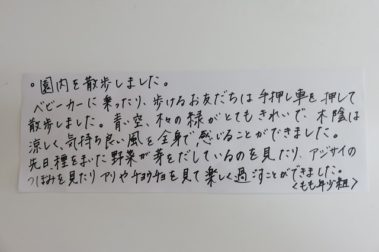 。園内を散歩しました。
ベビーカーに乗ったり、歩けるお友だちは手押し車を押して
散歩しました。青い空、木々の緑がとてもきれいで、木陰は
涼しく、気持ち良い風を全身で感じることができました。
先日、種をまいた野菜が芽をだしているのを見たり、アジサイの
つぼみを見たりアリやチョウチョを見て楽しく過ごすことができました。
<もも年少組>